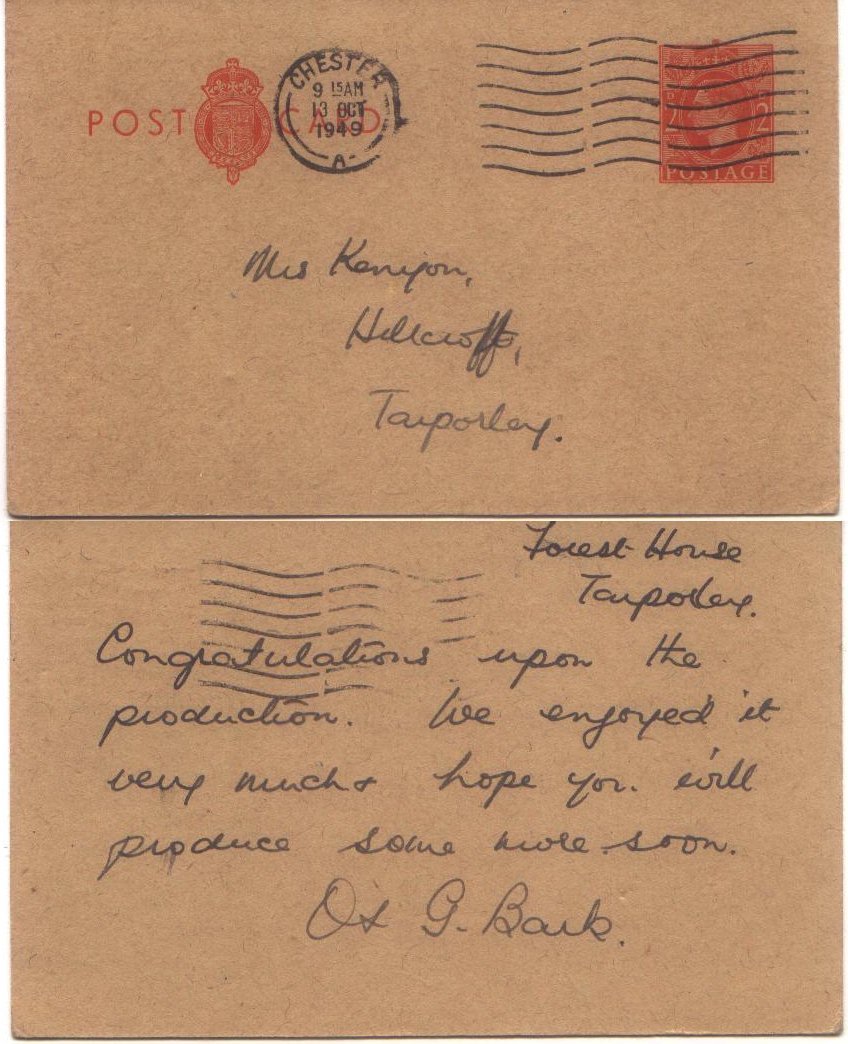 POST CARD
CHESTER
9 15AM
13 OCT
1949
A-
2 2
POSTAGE
Mrs Kenyon,
Hillcroft,
Tarporley.
Forest House
Tarporley.
Congratulations upon the
production. We enjoyed it
very much & hope you will
produce some more soon.
G. Bark.